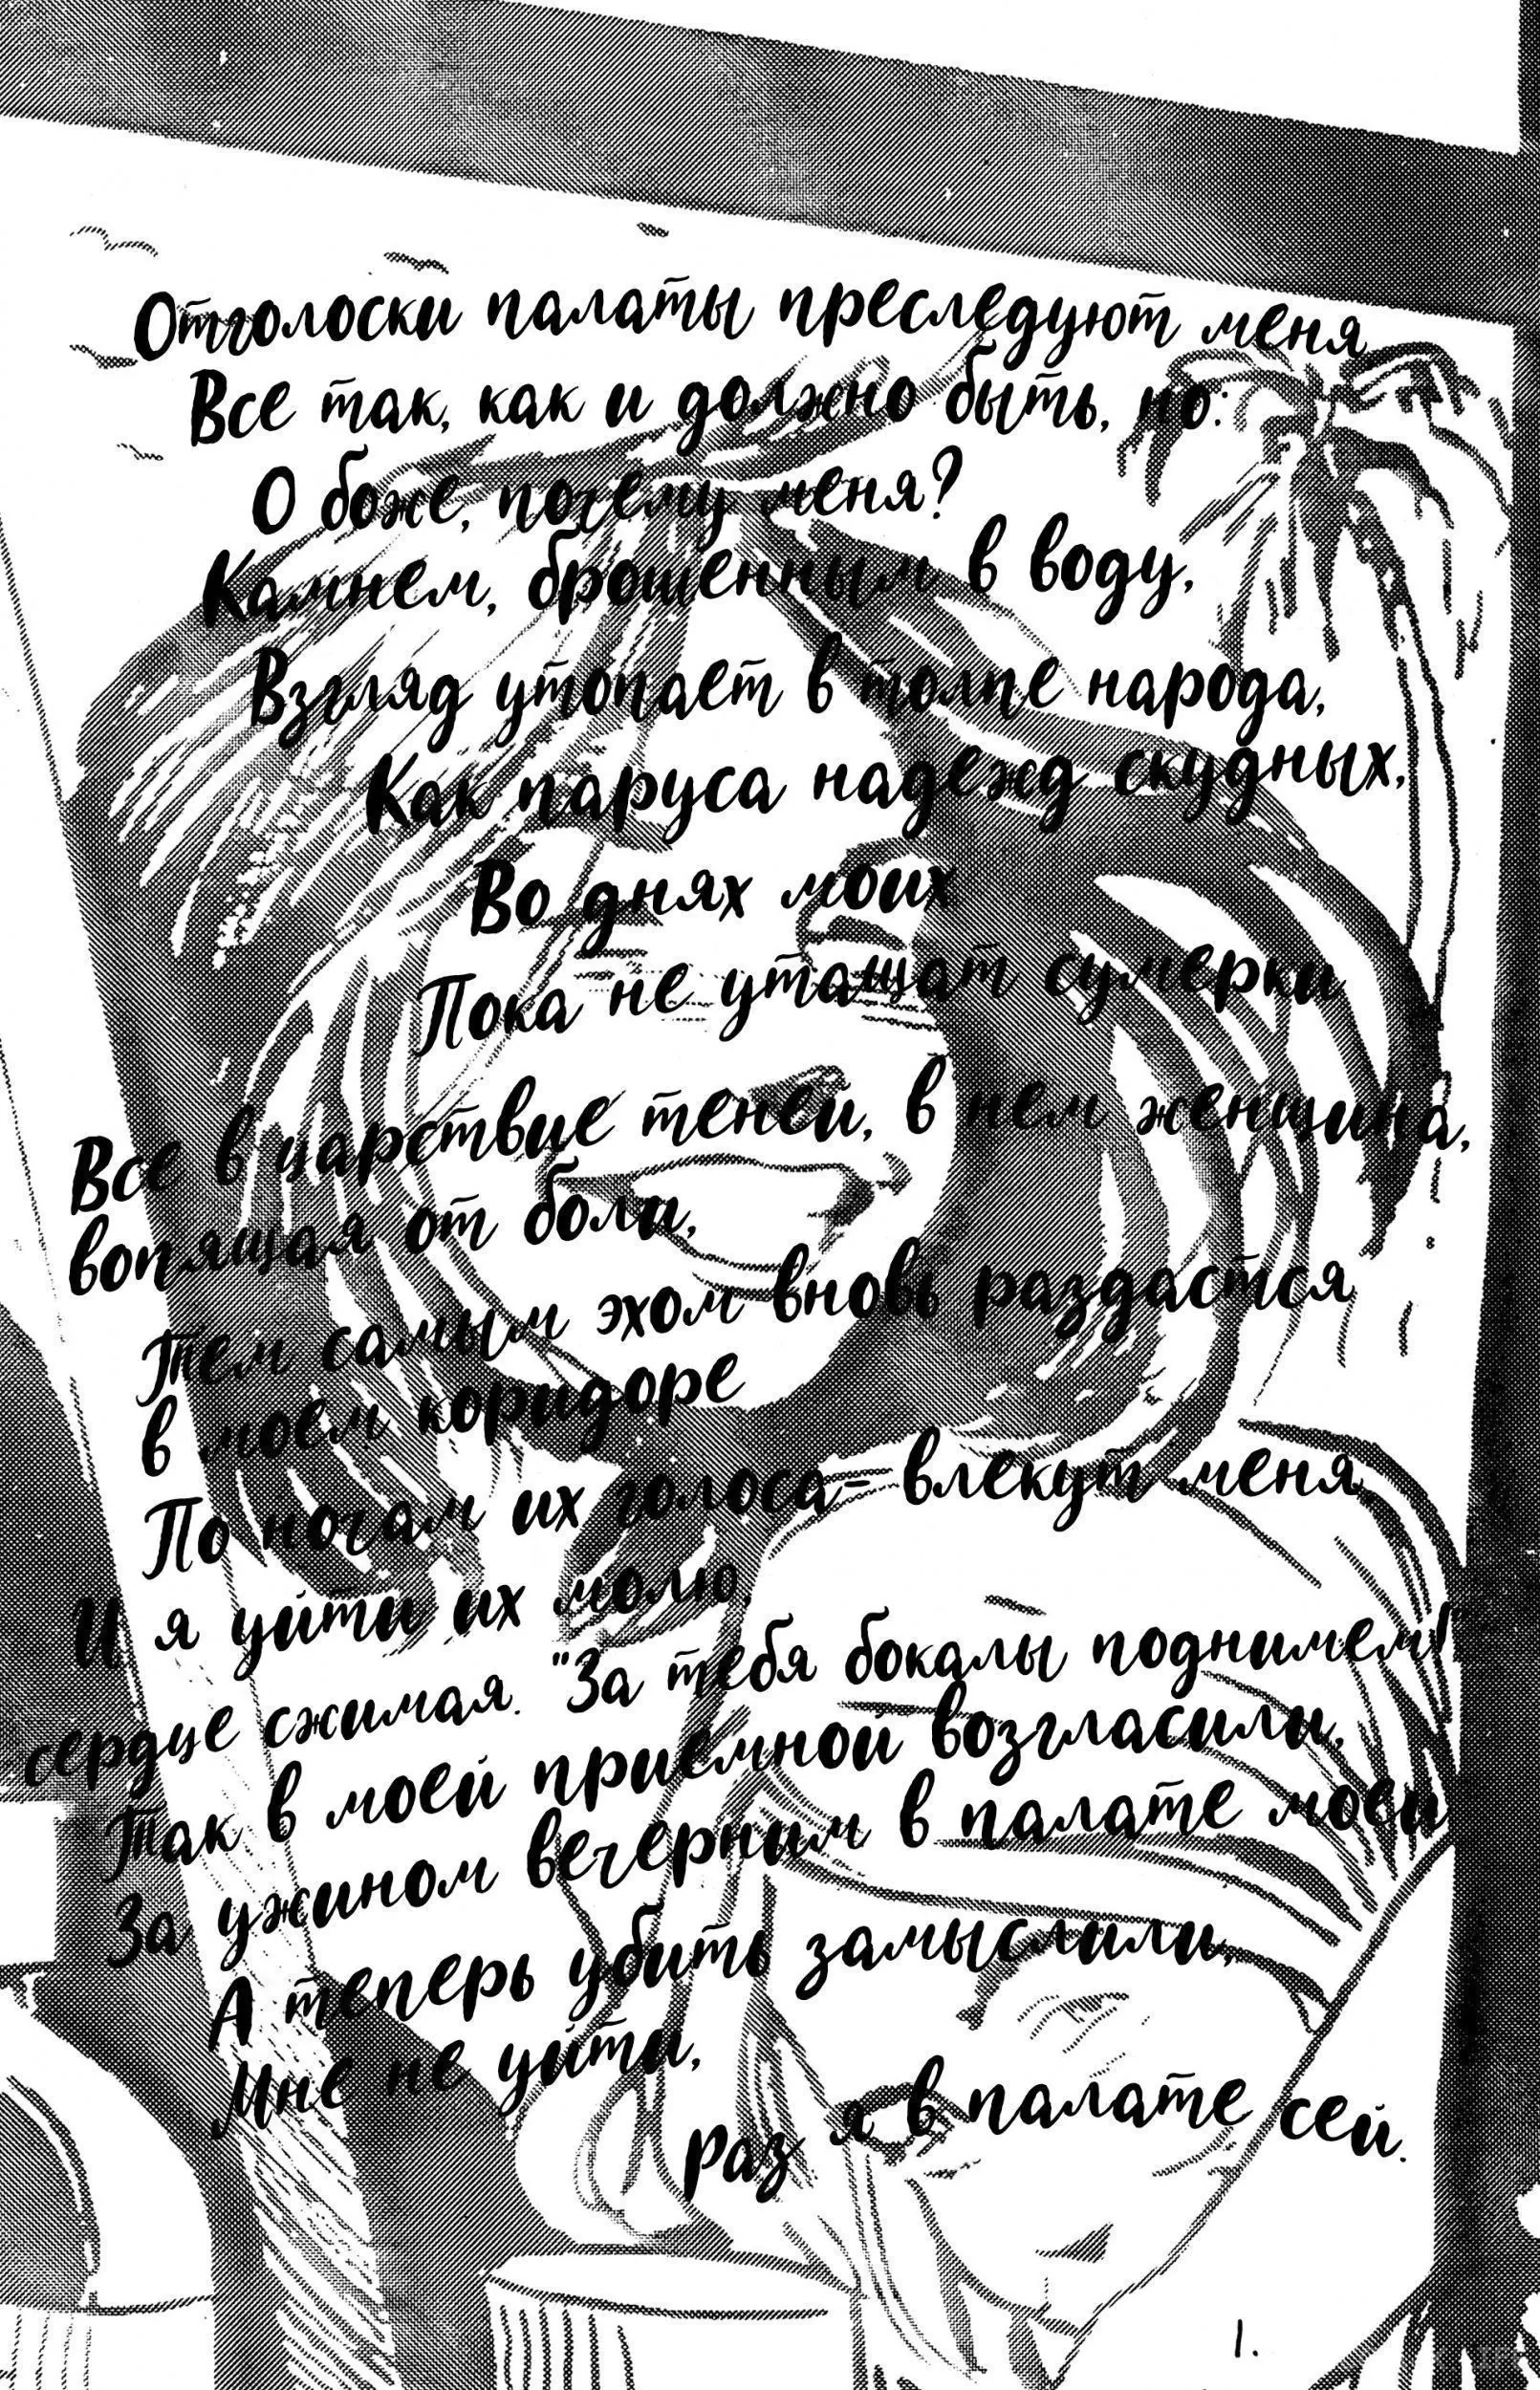 Отголоски палаты преследуют меня
Все так, как и должно быть, но:
О боже, почему меня?
Камнем, брошенным в воду,
Взгляд утопает в толпе народа,
Как паруса надежд скудных,
Во днях моих
Пока не утащат сумерки
Все в царствие теней, в нем женщина,
вопящая от боли,
Тем самым эхом вновь раздастся
в моем коридоре
По ночам их голоса- влекут меня
И я уйти их молю,
сердце сжимая. "За тебя бокалы поднимем!"
Так в моей приемной возгласили,
За ужином вечерним в палате моей
А теперь убить замыслили,
Мне не уйти,
раз я в палате сей.
1.